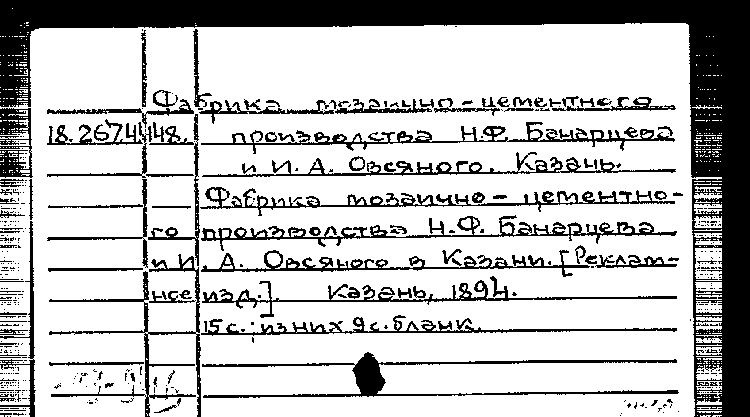 Фабрика мозаично-цементного
18.267.4.148. производства Н.Ф. Банарцева
и И. А. Овсяного. Казань.
Фабрика мозаично-цементно-
го производства Н.Ф. Банарцева
и И. А. Овсяного в Казани. [Реклам-
ное изд.]. Казань, 1894.
15 с.; из них 9 с. бланк.